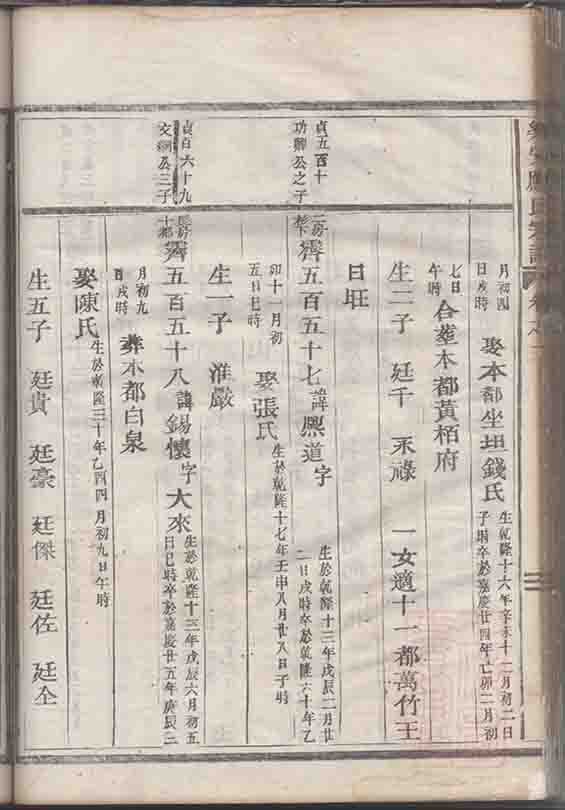 應氏宗譜
月初四
日戌時
娶本都坐坦錢氏
生乾隆十六年辛未十二月初二日
子時卒於嘉慶廿四年亡卯二月初
七日
午時
合塟本都黃栢府
生二子 廷千 禾祿 一女適十一都萬竹王
日旺
貞五百十
功卿公之子
霽五百五十七諱熈道字
生於乾隆十三年戊辰二月廿
二日戌時卒於乾隆六十年乙
卯十一月初
五日巳時
娶張氏
生於乾隆十七年壬申八月廿八日子時
生一子 淮嚴
貞百六十九
公三子
霽五百五十八諱錫懷字大來
生於乾隆十三年戊辰六月初五
日巳時卒於嘉慶廿五年庚辰三
月初九
日戌時
葬本都白泉
娶陳氏
生於乾隆三十年乙酉四月初九日午時
生五子 廷貴 廷豪 廷傑 廷佐 廷仝